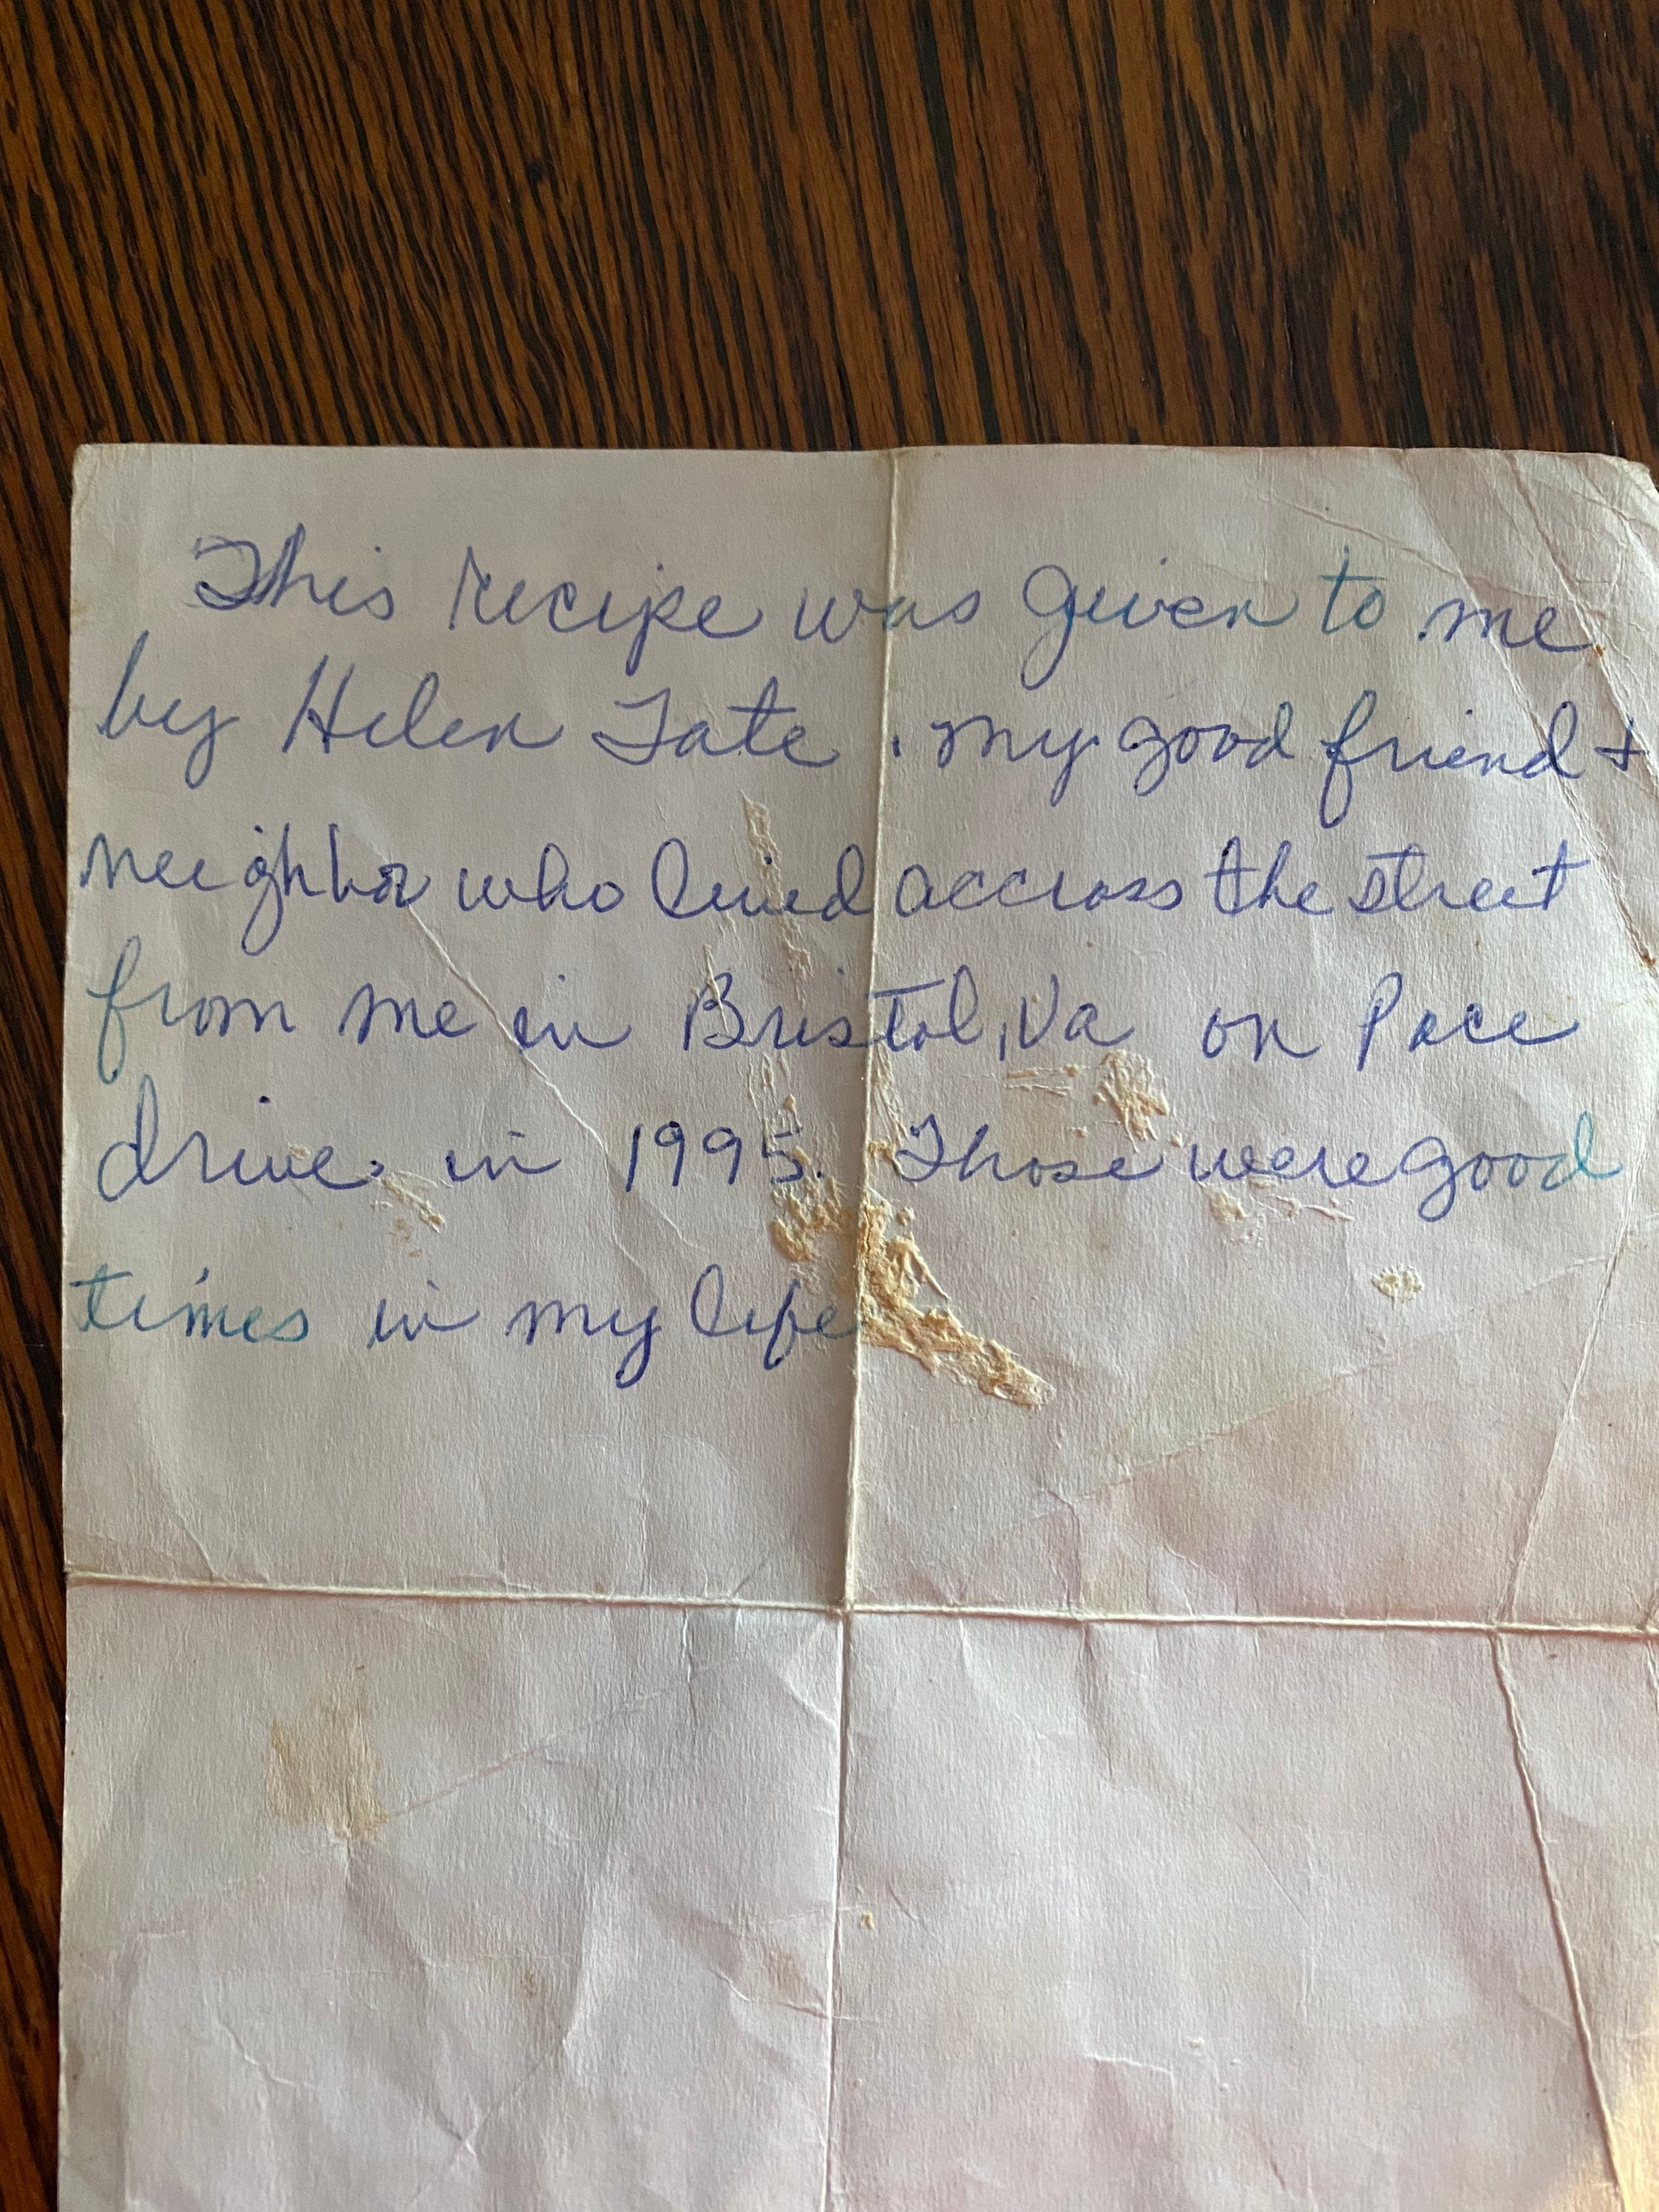 This recipe was given to me
by Helen Tate. my good friend +
neighbor who lived accross the street
from me in Bristol, Va on Pace
drive. in 1995. Those were good
times in my life